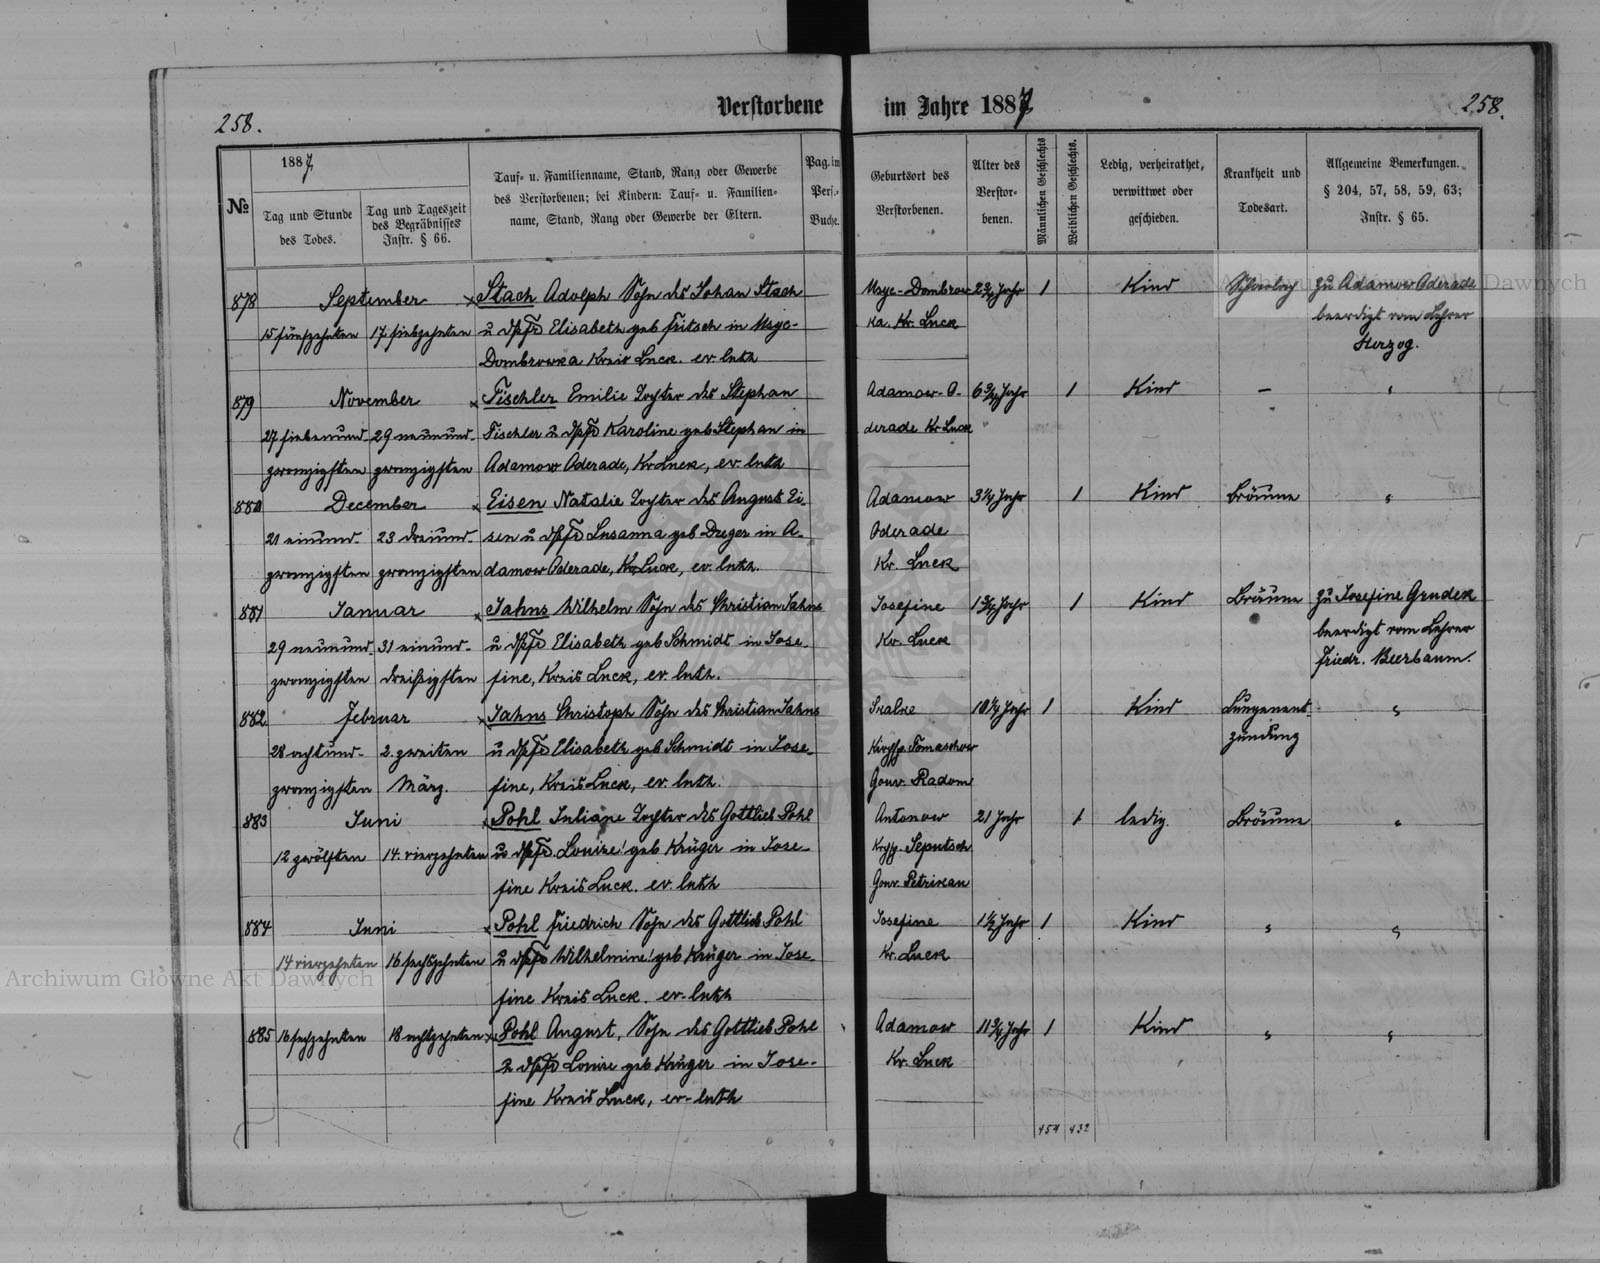 258.
Verstorbene im Jahre 1887
258.
№
1887
Tag und Stunde
des Todes.
Tag und Tageszeit
des Begräbnisses
Instr. § 66.
Tauf- u. Familienname, Stand, Rang oder Gewerbe
des Verstorbenen; bei Kindern: Tauf- u. Familien-
name, Stand, Rang oder Gewerbe der Eltern.
Pag. im
Pers.-
Buche.
Geburtsort des
Verstorbenen.
Alter des
Verstor-
benen.
Männlichen Geschlechts
Weiblichen Geschlechts.
Ledig, verheirathet,
verwittwet oder
geschieden.
Krankheit und
Todesart.
Allgemeine Bemerkungen.
§ 204, 57, 58, 59, 63;
Instr. § 65.
878 September × Stach Adolph Sohn des Johan Stach
15 fünfzehnten 17 siebzehnten u Elisabeth geb Fritsch in Maye-
Dombrowka Kreis Luck. ev. luth
Maye-Dombrow-
ka. Kr. Luck
2¾ Jahr 1 Kind Scharlach zu Adamow Oderade
beerdigt vom Lehrer
Herzog.
879 November × Fischler Emilie Tochter des Stephan
27 siebenund- 29 neunund- Fischler u Karoline geb Stephan in
zwanzigsten zwanzigsten Adamow Oderade, Kr Luck, ev. luth
Adamow-O-
derade Kr Luck
6¾ Jahr 1 Kind — "
880 December × Eisen Natalie Tochter des August Ei-
21 einund- 23 dreiund- sen u Susanna geb Dreger in A-
zwanzigsten zwanzigsten damow Oderade, Kr Luck, ev. luth.
Adamow
Oderade
Kr. Luck
3¼ Jahr 1 Kind Bräune "
881 Januar × Jahns Wilhelm Sohn des Christian Jahns
29 neunund- 31 einund- u Elisabeth geb Schmidt in Jose-
zwanzigsten dreißigsten fine, Kreis Luck, ev. luth.
Josefine
Kr. Luck
1¾ Jahr 1 Kind Bräune zu Josefine Grudek
beerdigt vom Lehrer
Friedr. Beerbaum.
882 Februar × Jahns Christoph Sohn des Christian Jahns
28 achtund- 2. zweiten u Elisabeth geb Schmidt in Jose-
zwanzigsten März. fine, Kreis Luck, ev. luth.
Skalke
Kirchsp. Tomaschow
Gouv. Radom
10¼ Jahr 1 Kind Lungenent-
zündung "
883 Juni × Pohl Juliane Tochter des Gottlieb Pohl
12 zwölften 14. vierzehnten u Louise geb Krüger in Jose-
fine Kreis Luck. ev. luth
Antonow
Kchsp. Seputsch
Gouv. Petrikau
21 Jahr 1 ledig. Bräune "
884 Juni × Pohl Friedrich Sohn des Gottlieb Pohl
14 vierzehnten 16 sechszehnten u Wilhelmine geb Krüger in Jose-
fine Kreis Luck. ev. luth
Josefine
Kr. Luck
1½ Jahr 1 Kind " "
885 16 sechzehnten 18 achtzehnten × Pohl August, Sohn des Gottlieb Pohl
u Louise geb Krüger in Jose-
fine Kreis Luck, ev. luth
Adamow
Kr. Luck
11¾ Jahr 1 Kind " "
432
Archiwum Główne Akt Dawnych